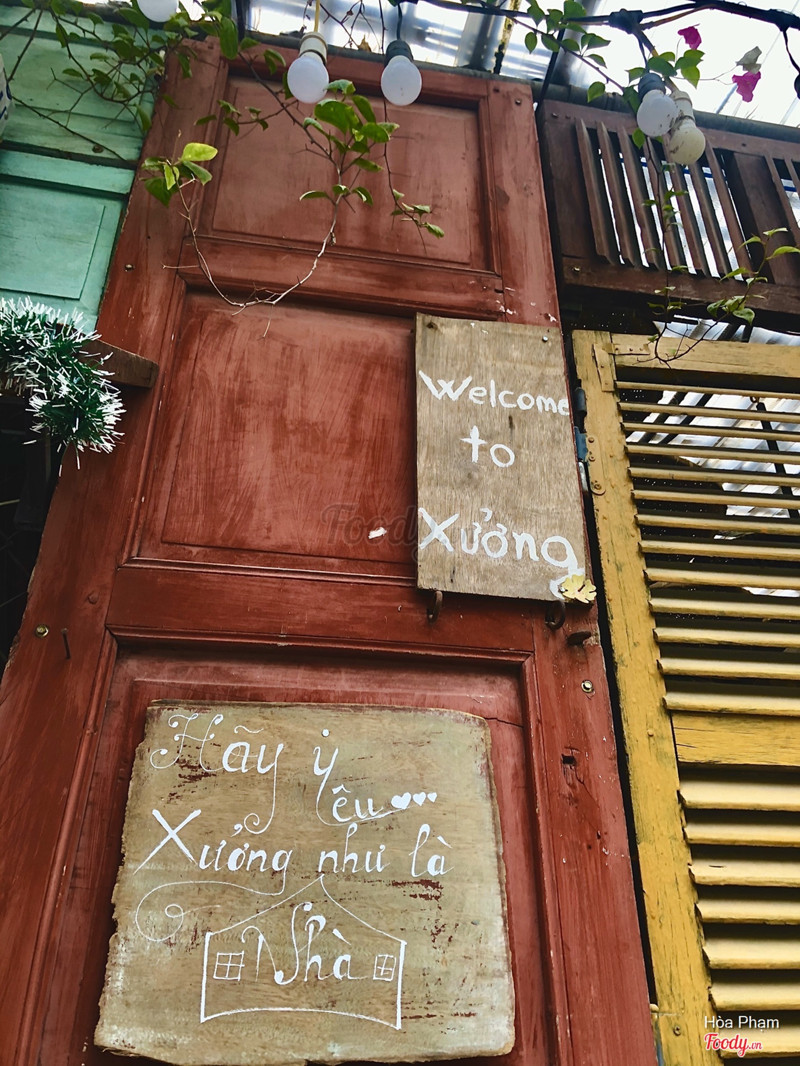 Welcome
to
Xưởng
Hãy yêu
Xưởng như là
Nhà
Foody
Hòa Phạm
Foody.vn